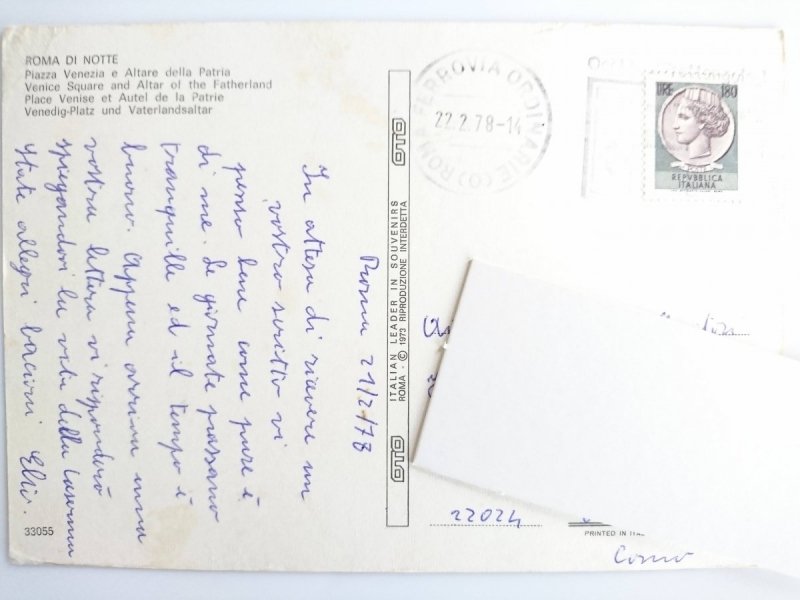 ROMA DI NOTTE
Piazza Venezia e Altare della Patria
Venice Square and Altar of the Fatherland
Place Venise et Autel de la Patrie
Venedig-Platz und Vaterlandsaltar
Roma 21/2/78
In attesa di ricevere un
vostro scritto vi
penso bene come pure è
di me. Le giornate passano
tranquille ed il tempo è
buono. Appena arriva una
vostra lettera vi risponderò
spiegandovi la vita della caserma
state allegri bacioni Elio.
33055
OTO
ITALIAN LEADER IN SOUVENIRS
ROMA - © 1973 RIPRODUZIONE INTERDETTA
OTO
ROMA FERROVIA ORDINARIE (O)
22.2.78-14
LIRE 180
REPVBBLICA
ITALIANA
22024
PRINTED IN
Como